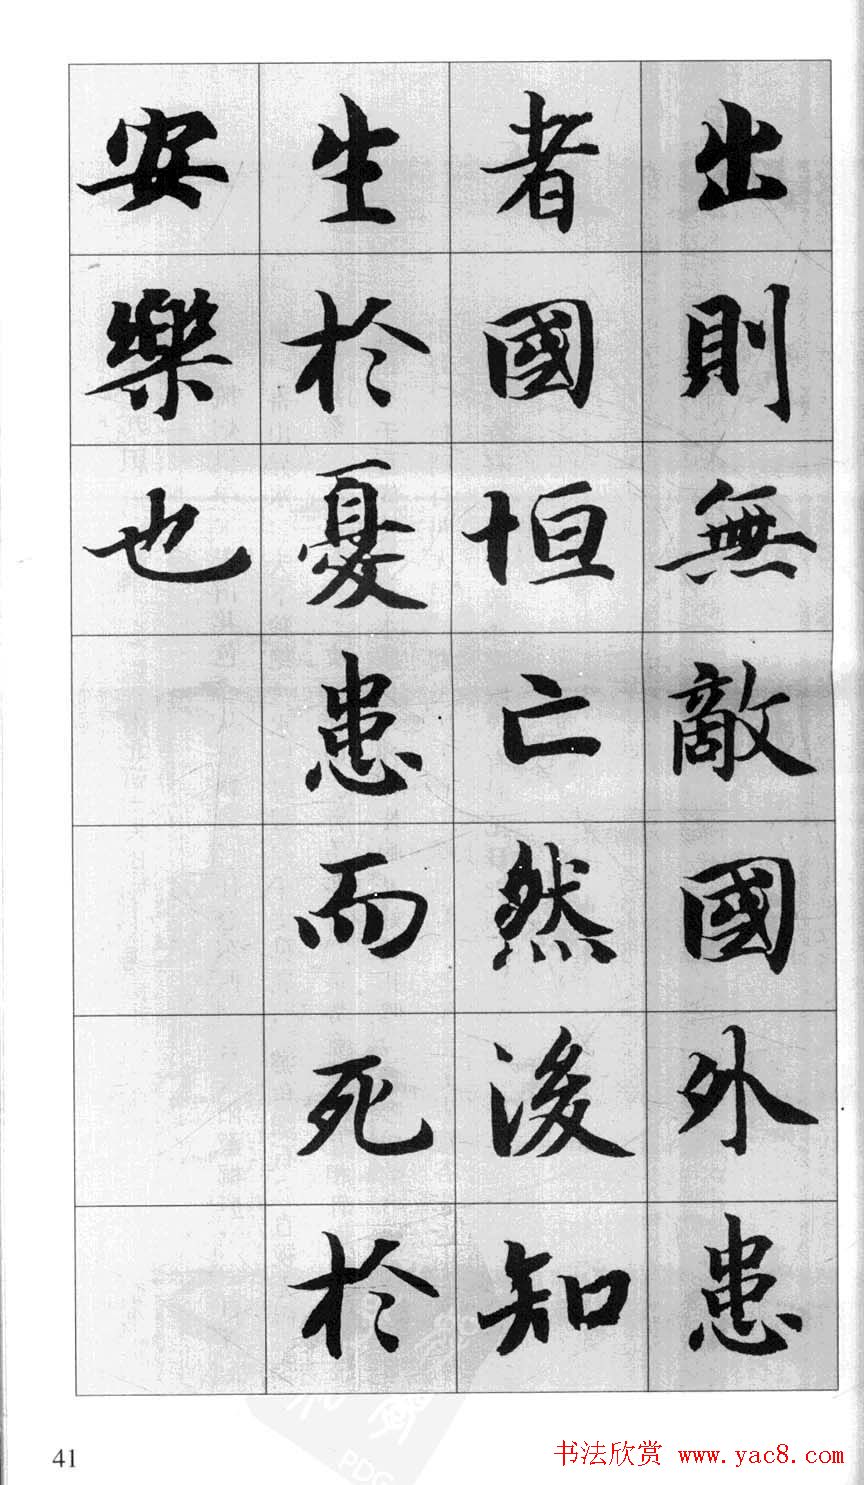 出則無敵國外患
者國恒亡然後知
生於憂患而死於
安樂也
41
书法欣赏 www.yac8.com